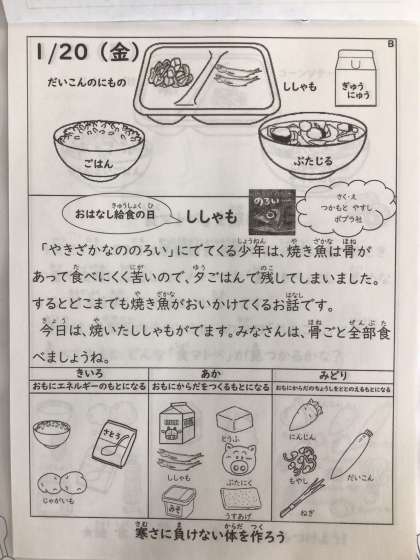 B
1/20（金）
だいこんのにもの
ししゃも
ぎゅうにゅう
ごはん
ぶたじる
おはなし給食の日
ししゃも
のろい
さく・え
つかもと やすし
ポプラ社
「やきざかなののろい」にでてくる少年は、焼き魚は骨が
あって食べにくく苦いので、夕ごはんで残してしまいました。
するとどこまでも焼き魚がおいかけてくるお話です。
今日は、焼いたししゃもがでます。みなさんは、骨ごと全部食
べましょうね。
きいろ
おもにエネルギーのもとになる
あか
おもにからだをつくるもとになる
みどり
おもにからだのちょうしをととのえるもとになる
さとう
じゃがいも
とうふ
ししゃも
ぶたにく
みそ
うすあげ
にんじん
もやし
だいこん
ねぎ
寒さに負けない体を作ろう